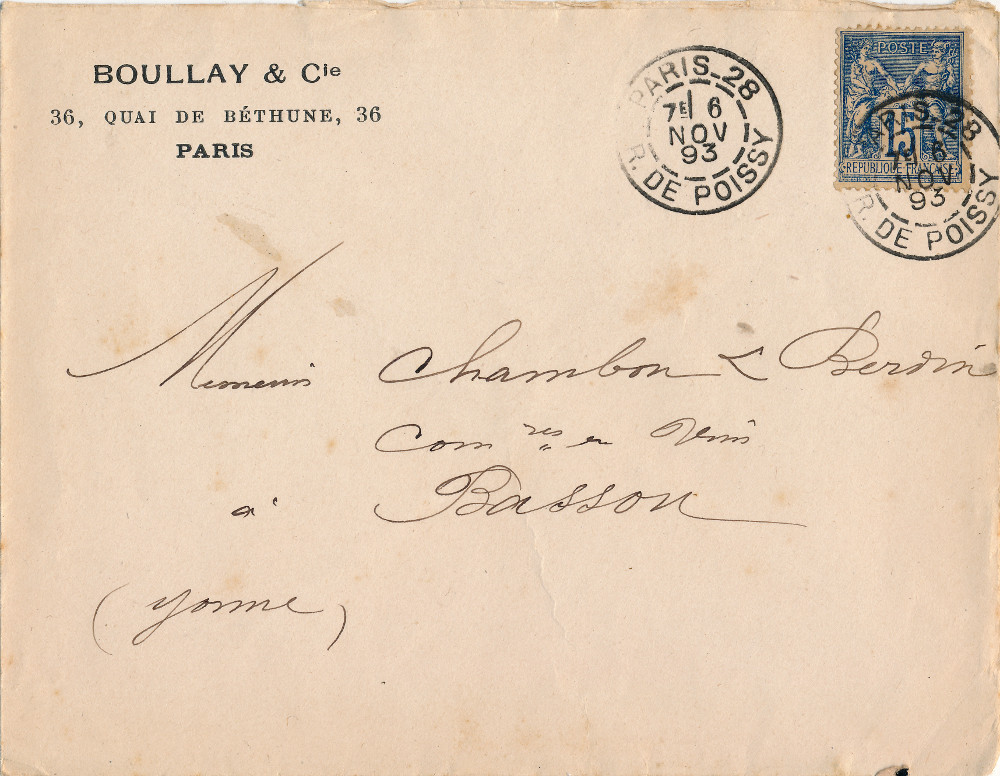 BOULLAY & Cie
36, QUAI DE BÉTHUNE, 36
PARIS
PARIS-28
7E 6
NOV
93
R. DE POISSY
POSTE
15
REPUBLIQUE FRANÇAISE
PARIS-28
7E 6
NOV
93
R. DE POISSY
Messieurs Chambon & Berdin
Com res en Vins
à Basson
(Yonne)